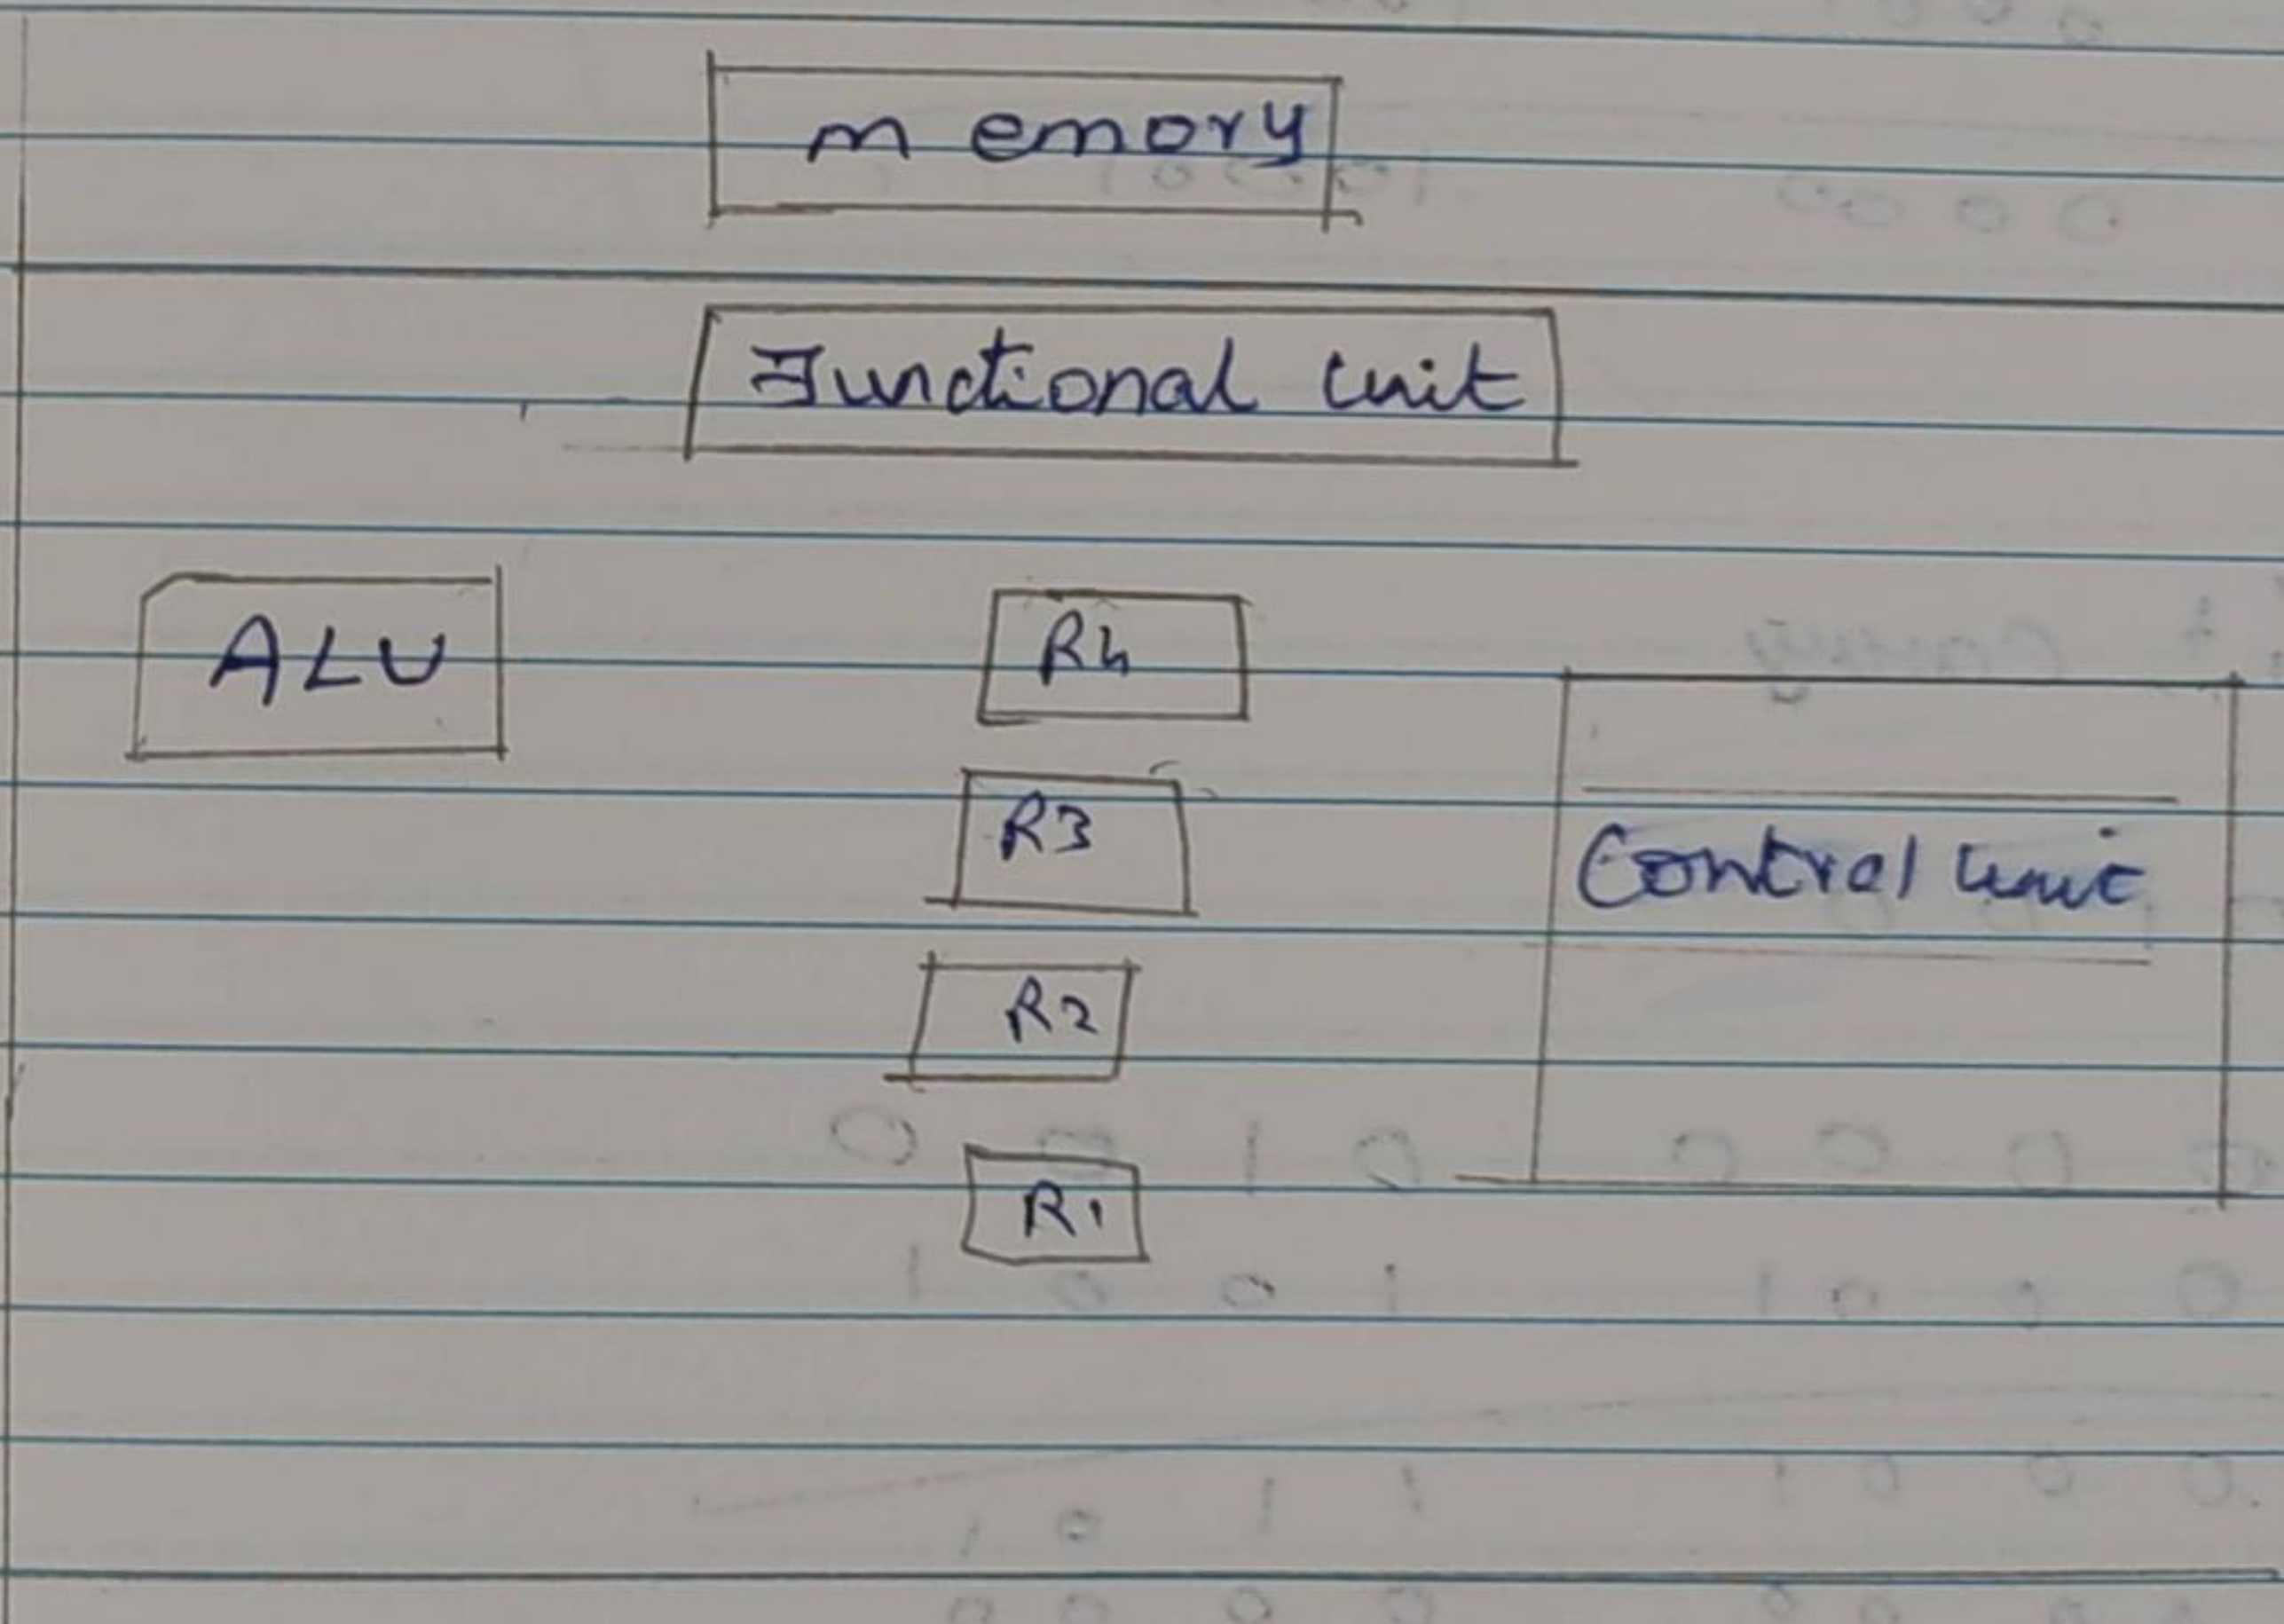 memory
Functional unit
ALU
R4
R3
Control unit
R2
R1